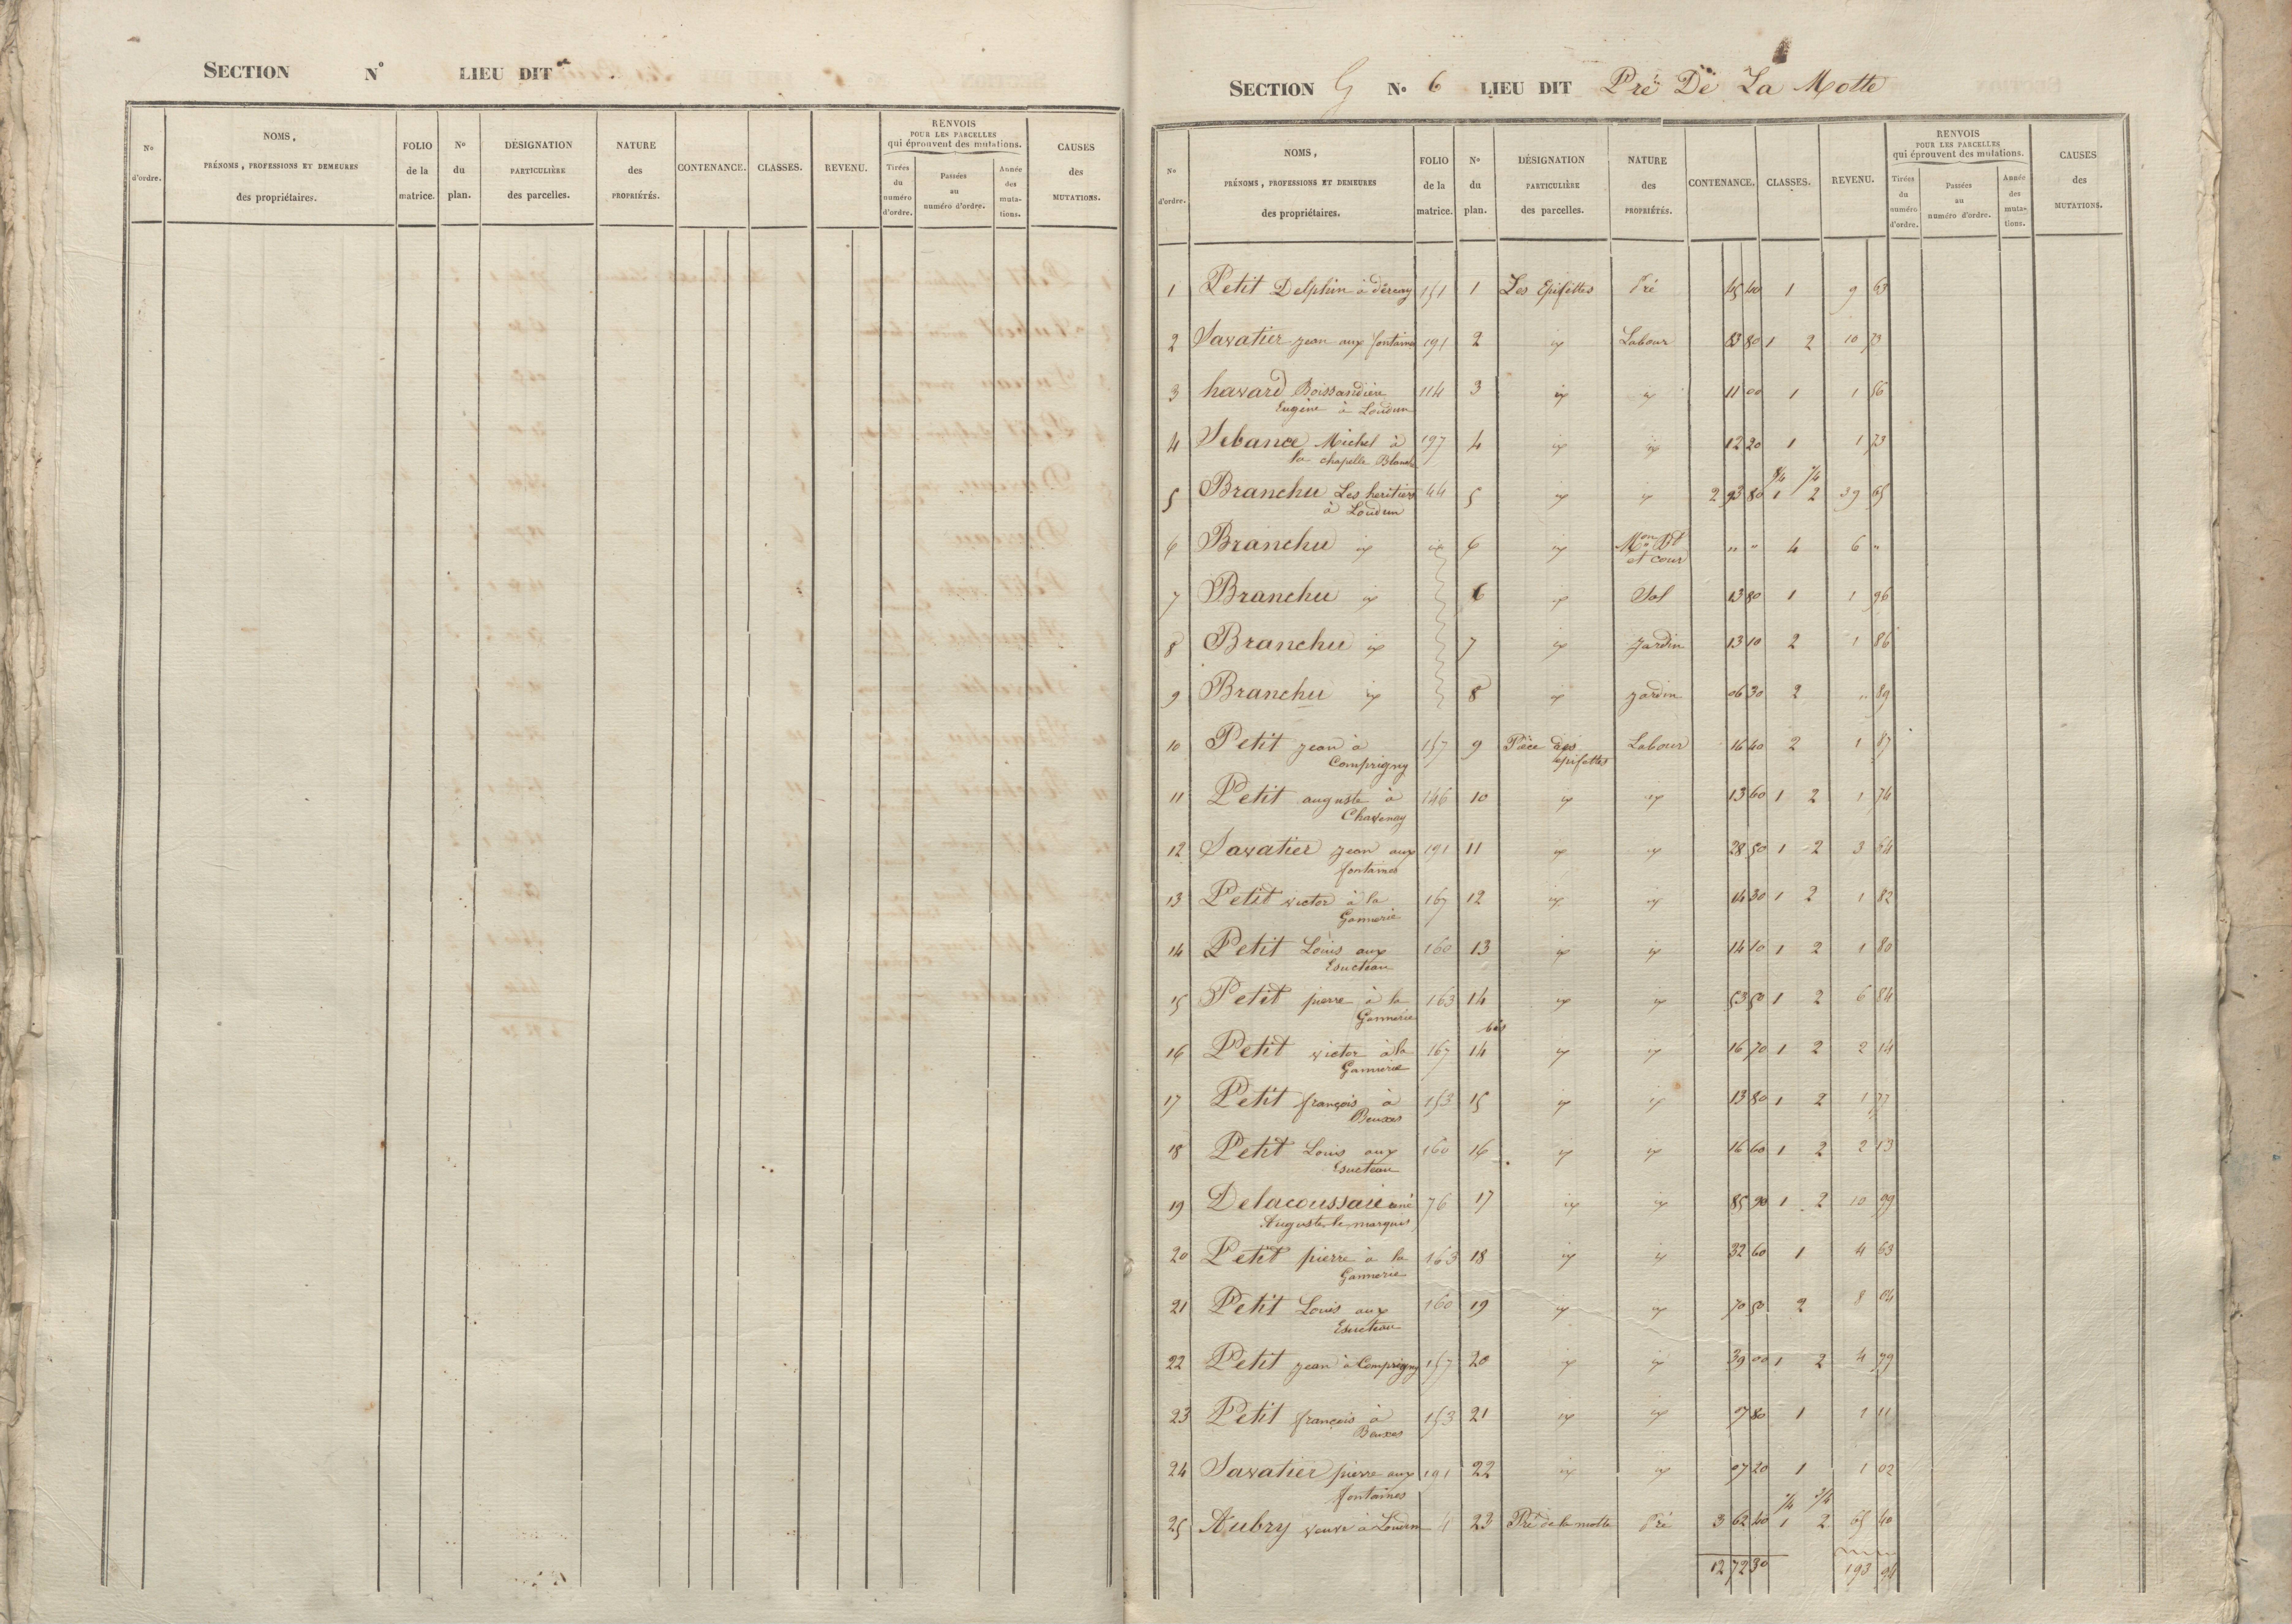 SECTION N° LIEU DIT
N° d'ordre. NOMS, PRÉNOMS, PROFESSIONS ET DEMEURES des propriétaires. FOLIO de la matrice. N° du plan. DÉSIGNATION PARTICULIÈRE des parcelles. NATURE des PROPRIÉTÉS. CONTENANCE. CLASSES. REVENU. RENVOIS POUR LES PARCELLES qui éprouvent des mutations. Tirées du numéro d'ordre. Passées au numéro d'ordre. Année des muta-tions. CAUSES des MUTATIONS.
SECTION G N° 6 LIEU DIT Pré De La Motte
N° d'ordre. NOMS, PRÉNOMS, PROFESSIONS ET DEMEURES des propriétaires. FOLIO de la matrice. N° du plan. DÉSIGNATION PARTICULIÈRE des parcelles. NATURE des PROPRIÉTÉS. CONTENANCE. CLASSES. REVENU. RENVOIS POUR LES PARCELLES qui éprouvent des mutations. Tirées du numéro d'ordre. Passées au numéro d'ordre. Année des muta-tions. CAUSES des MUTATIONS.
1 Petit Delphin à dercay 151 1 Les Epifettes Pré 45 40 1 9 63
2 Savatier jean aux fontaines 191 2 id Labour 83 80 1 2 10 73
3 havard Boissardière 114 3 id id 11 00 1 1 56
Eugène à Loudun
4 Sebance Michel à 197 4 id id 12 20 1 1 73
la chapelle Blanch
5 Branchu Les heritiers 44 5 id id 2 93 80 1 2 39 65
à Loudun
6 Branchu id id 6 id Mon Bt " " 4 6 "
et cour
7 Branchu id 6 id Sol 13 80 1 1 96
8 Branchu id 7 id Jardin 13 10 2 1 86
9 Branchu id 8 id Jardin 06 30 2 " 89
10 Petit jean à 157 9 Pièce des Labour 16 40 2 1 87
Comprigny epifettes
11 Petit auguste à 146 10 id id 13 60 1 2 1 74
Chavenay
12 Savatier jean aux 191 11 id id 28 50 1 2 3 64
fontaines
13 Petit victor à la 167 12 id id 14 30 1 2 1 82
Gannerie
14 Petit Louis aux 160 13 id id 14 10 1 2 1 80
Esucteau
15 Petit pierre à la 163 14 id id 53 50 1 2 6 84
Gannerie
16 Petit victor à la 167 14 bis id id 16 70 1 2 2 14
Gannerie
17 Petit françois à 153 15 id id 13 80 1 2 1 77
Beuxes
18 Petit Louis aux 160 16 id id 16 60 1 2 2 13
Esucteau
19 Delacoussaie ainé 76 17 id id 85 90 1 2 10 99
Auguste le marquis
20 Petit pierre à la 163 18 id id 32 60 1 4 63
Gannerie
21 Petit Louis aux 160 19 id id 70 50 2 8 04
Esucteau
22 Petit jean à Comprigny 157 20 id id 39 00 1 2 4 99
23 Petit françois à 153 21 id id 07 80 1 1 11
Beuxes
24 Savatier pierre aux 191 22 id id 07 20 1 1 02
fontaines
25 Aubry veuve à Loudun 4 23 Pré de la motte Pré 3 62 40 1/4 1 3/4 2 65 40
12 72 30 193 94